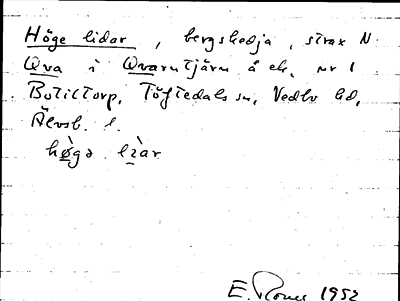 Höge lidar, bergskedja, strax N
Qva i Qvarntjärn å ek. nr 1
Botiltorp, Töftedals sn, Vedbo hd,
Älvsb. l.
hø̀gə lìar
1952